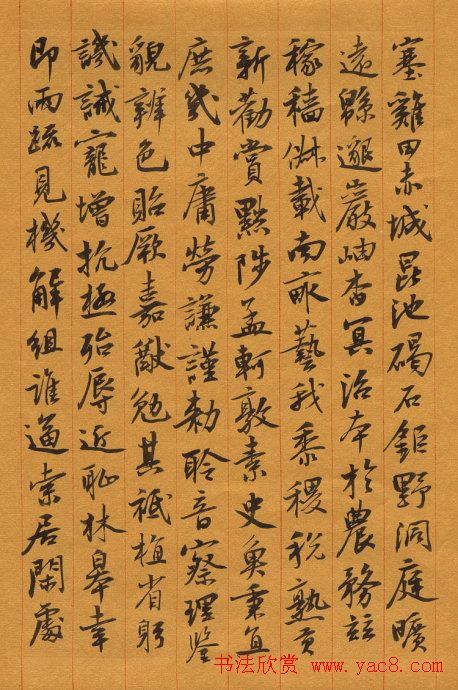 塞雞田赤城昆池碣石鉅野洞庭曠
遠緜邈巖岫杳冥治本於農務茲
稼穡俶載南畝藝我黍稷稅熟貢
新勸賞黜陟孟軻敦素史魚秉直
庶幾中庸勞謙謹勅聆音察理鑒
貌辨色貽厥嘉猷勉其祗植省躬
譏誡寵增抗極殆辱近恥林皋幸
即兩疏見機解組誰逼索居閑處
书法欣赏 www.yac8.com